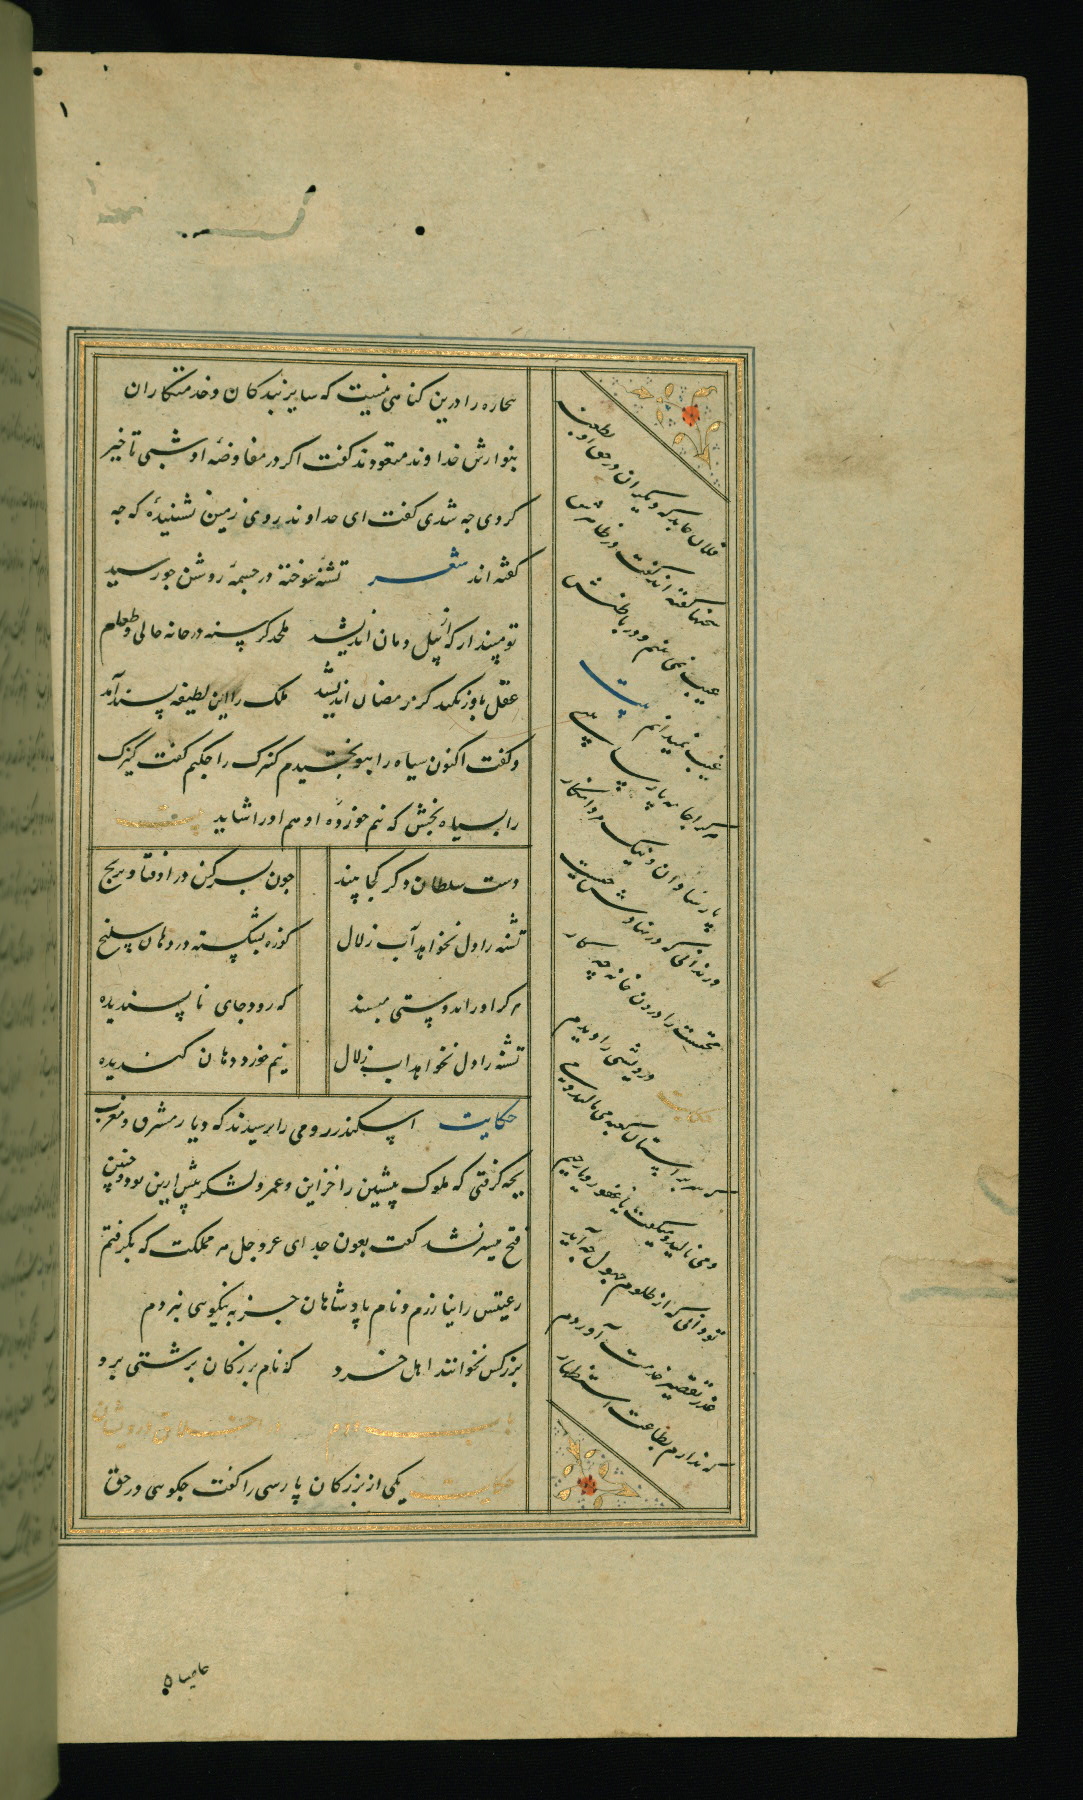 بیچاره را درین کناهی نیست که سایر بندکان و خدمتکاران
بنوازش خداوند متعودند کفت اکر در مفاوضهٔ او شبی تاخیر
کردی چه شدی کفت ای خداوند روی زمین نشنیدهٔ که چه
کفته اند شعر تشنهٔ سوخته در چشمهٔ روشن چو رسید
تو مپندار که از پیل دمان اندیشد ملحد کرسنه در خانه خالی و طعام
عقل باور نکند کز رمضان اندیشد ملک را این لطیفه پسند آمد
و کفت اکنون سیاه را بتو بخشیدم کنیزک را چکنم کفت کنیزک
را بسیاه بخش که نیم خوردهٔ او هم او را شاید
دست سلطان دکر کجا بیند چون بسرکین در اوفتاد ترنج
تشنه را دل نخواهد آب زلال کوزه بشکسته در دهان سکنج
هرکز او را بدوستی مپسند که رود جای ناپسندیده
تشنه را دل نخواهد آب زلال نیم خورد دهان کندیده
حکایت اسکندر رومی را پرسیدند که دیار مشرق و مغرب
بچه کرفتی که ملوک پیشین را خزاین و عمر و لشکر بیش ازین بود و چنین
فتح میسر نشد کفت بعون خدای عز و جل هر مملکت که بکرفتم
رعیتش را نیازردم و نام پادشاهان جز به نیکویی نبردم
بزرکش نخوانند اهل خرد که نام بزرکان بزشتی برد
باب دوم در اخلاق درویشان
حکایت یکی از بزرکان پارسی را کفت چکویی در حق
فلان عابد که دیکران در حق او بطعن
سخنها کفته اند کفت در ظاهرش
عیب نمی بینم و در باطنش
غیب نمیدانم بیت
هر کرا جامه پارسا بینی
پارسا دان و نیک مرد انکار
ور ندانی که در نهادش چیست
محتسب را درون خانه چه کار
حکایت درویشی را دیدم
سر بر آستان کعبه می مالید
و می نالید و میکفت یا غفور و یا رحیم
تو دانی که از ظلوم جهول چه آید
عذر تقصیر خدمت آوردم
که ندارم بطاعت استظهار